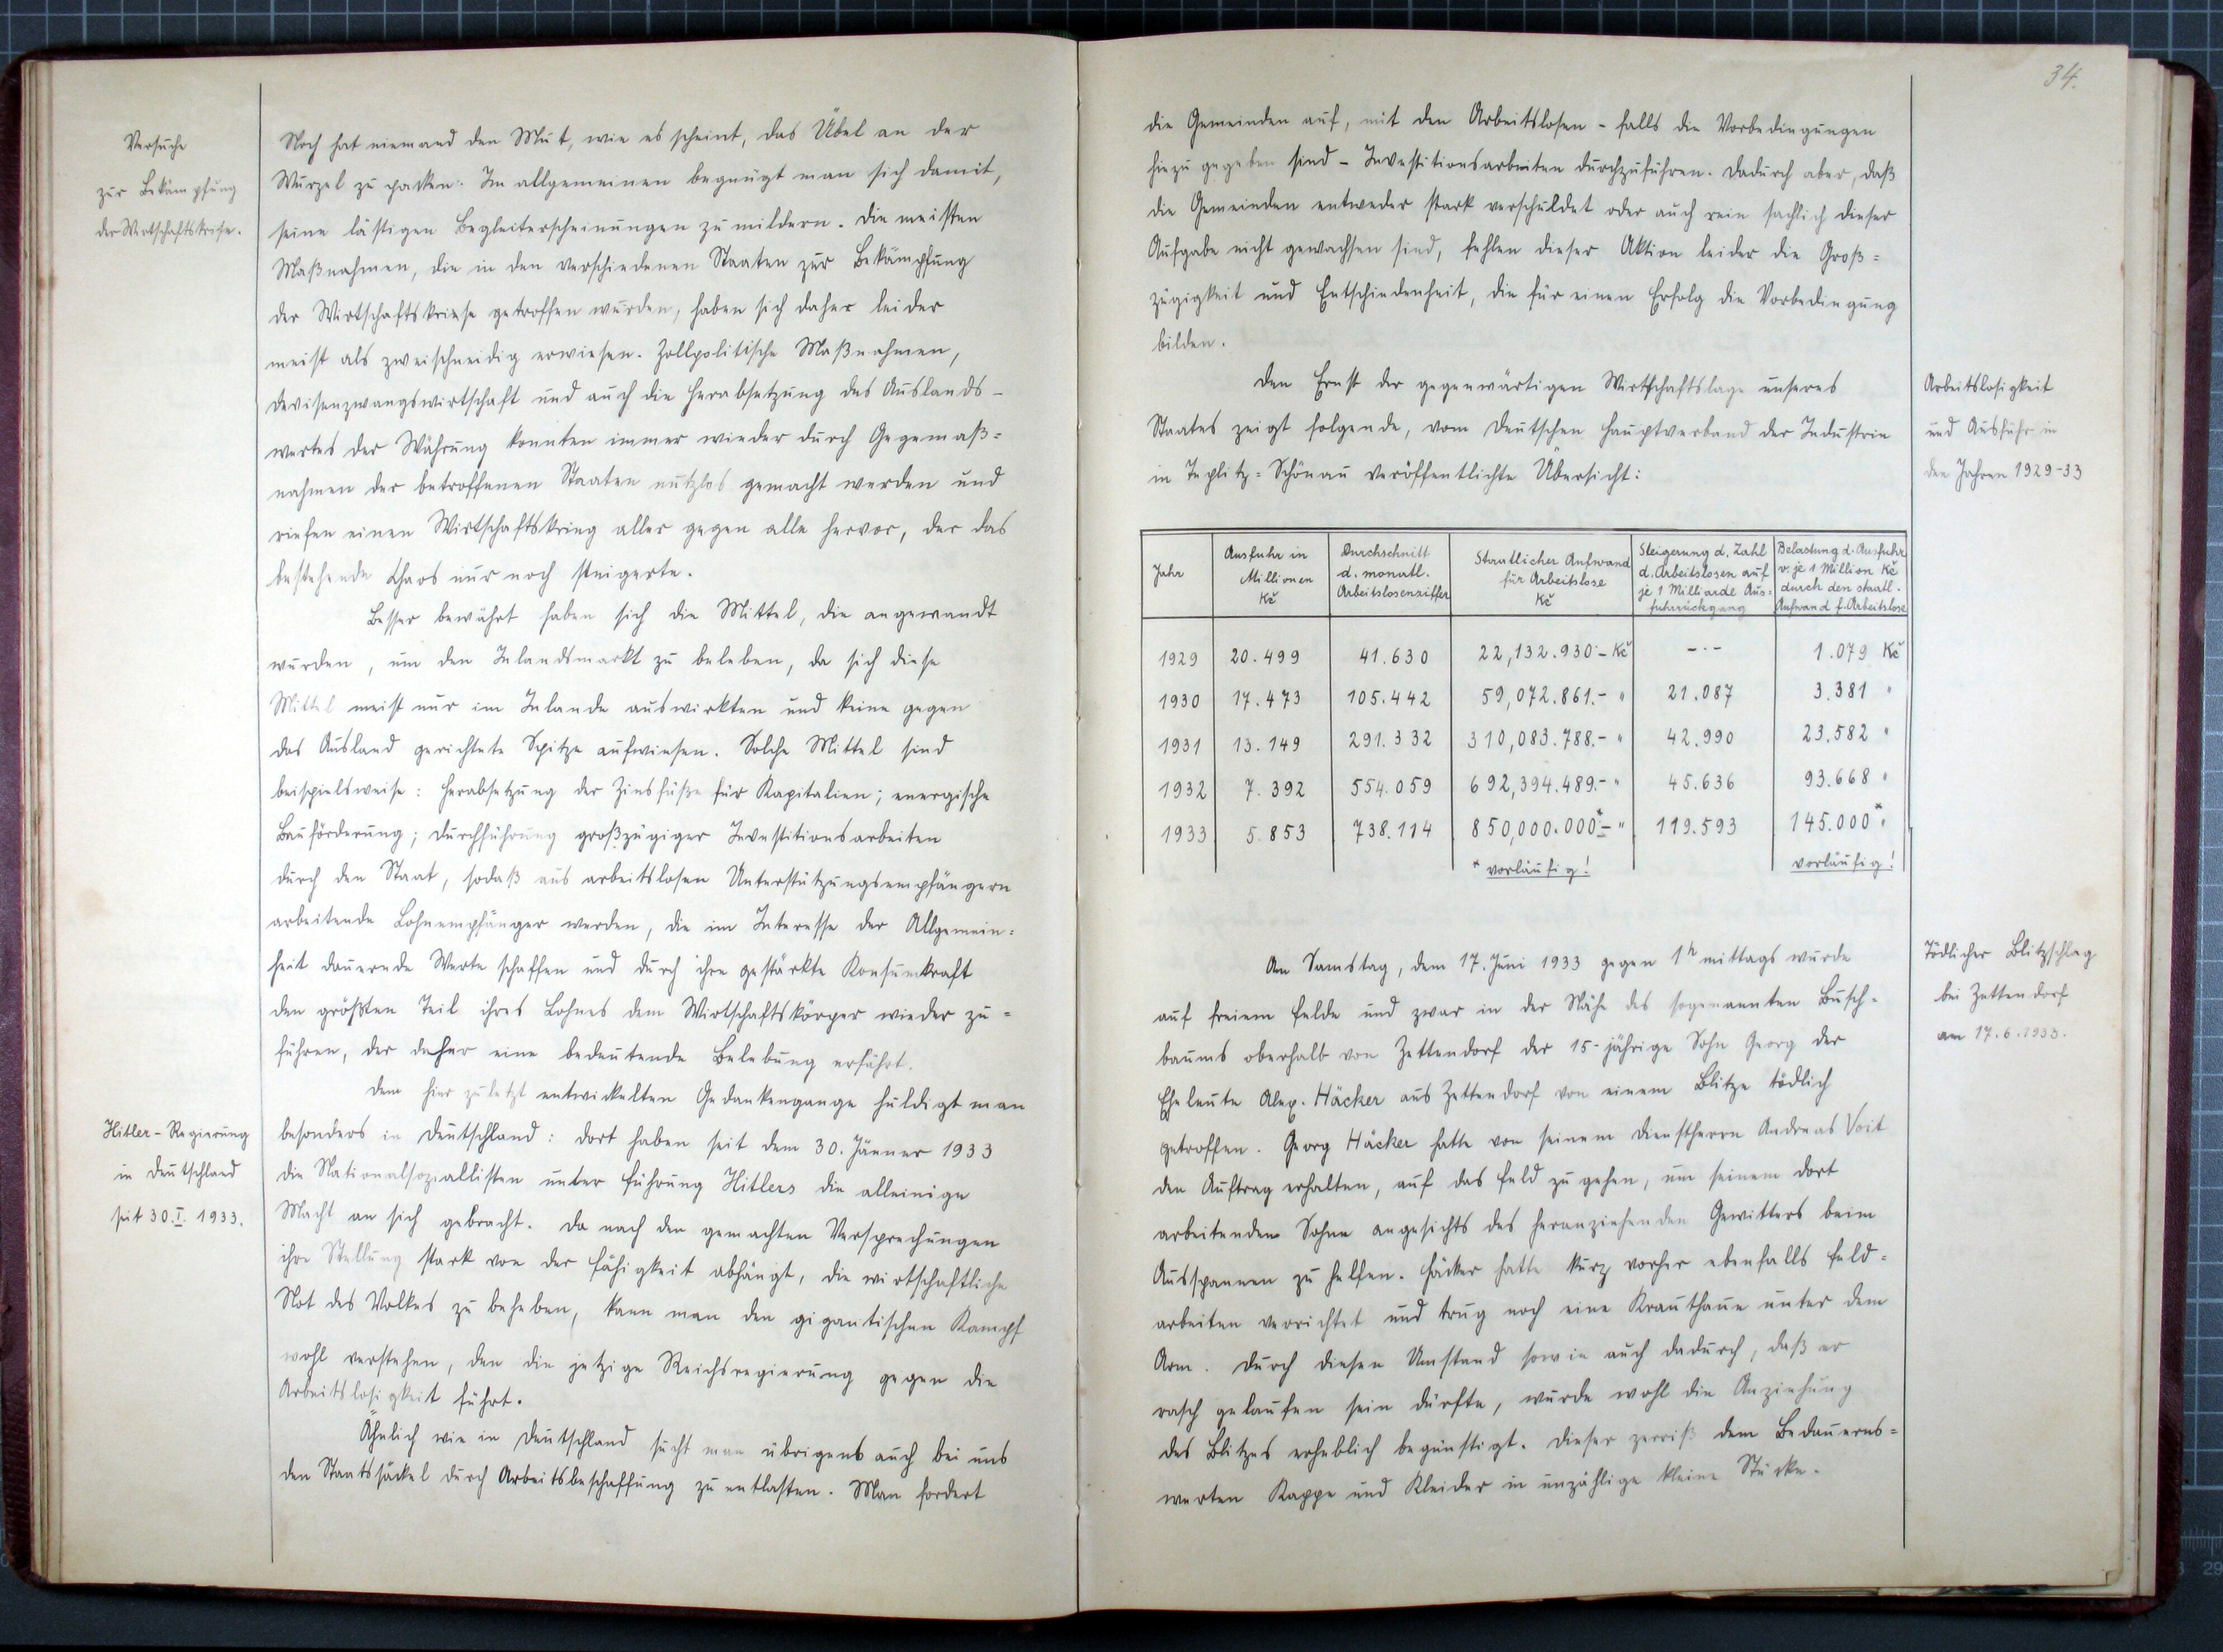 Versuche
zur Bekämpfung
der Wirtschaftskrise.
Noch hat niemand den Mut, wie es scheint, das Übel an der
Wurzel zu packen. Im allgemeinen begnügt man sich damit,
seine lästigen Begleiterscheinungen zu mildern. Die meisten
Maßnahmen, die in den verschiedenen Staaten zur Bekämpfung
der Wirtschaftskriese getroffen wurden, haben sich daher leider
meist als zweischneidig erwiesen. Zollpolitische Maßnahmen,
Devisenzwangswirtschaft und auch die Herabsetzung des Auslands-
wertes der Währung konnten immer wieder durch Gegemaß=
nahmen der betroffenen Staaten nutzlos gemacht werden und
riefen einen Wirtschaftskrieg aller gegen alle hervor, der das
bestehende Chaos nur noch steigerte.
Besser bewährt haben sich die Mittel, die angewandt
wurden, um den Inlandsmarkt zu beleben, da sich diese
Mittel meist nur im Inlande auswirkten und keine gegen
das Ausland gerichtete Spitze aufwiesen. Solche Mittel sind
beispielsweise: Herabsetzung der Zinsfüße für Kapitalien; energische
Bauförderung; Durchführung großzügiger Investitionsarbeiten
durch den Staat, sodaß aus arbeitslosen Unterstützungsempfängern
arbeitende Lohnempfänger werden, die im Interesse der Allgemein=
heit dauernde Werte schaffen und durch ihre gestärkte Konsumkraft
den größten Teil ihres Lohnes dem Wirtschaftskörper wieder zu=
führen, der daher eine bedeutende Belebung erfährt.
Dem hier zuletzt entwickelten Gedankengange huldigt man
Hitler-Regierung
in Deutschland
seit 30.I. 1933.
besonders in Deutschland: Dort haben seit dem 30. Jänner 1933
die Nationalsoziallisten unter Führung Hitlers die alleinige
Macht an sich gebracht. Da nach den gemachten Versprechungen
ihre Stellung stark von der Fähigkeit abhängt, die wirtschaftliche
Not des Volkes zu beheben, kann man den gigantischen Kampf
wohl verstehen, den die jetzige Reichsregierung gegen die
Arbeitslosigkeit führt.
Ähnlich wie in Deutschland sucht man übrigens auch bei uns
den Staatssäckel durch Arbeitsbeschaffung zu entlasten. Man fordert
34.
die Gemeinden auf, mit den Arbeitslosen - falls die Vorbedingungen
hiezu gegeben sind - Investitionsarbeiten durchzuführen. Dadurch aber, daß
die Gemeinden entweder stark verschuldet oder auch rein sachlich dieser
Aufgabe nicht gewachsen sind, fehlen dieser Aktion leider die Groß=
zügigkeit und Entschiedenheit, die für einen Erfolg die Vorbedingung
bilden.
Den Ernst der gegenwärtigen Wirtschaftslage unseres
Staates zeigt folgende, vom Deutschen Hauptverband der Industrie
in Teplitz=Schönau veröffentlichte Übersicht:
Arbeitslosigkeit
und Ausfuhr in
den Jahren 1929-33
Jahr
Ausfuhr in
Millionen
Kč
Durchschnitt
d. monatl.
Arbeitslosenziffer
Staatlicher Aufwand
für Arbeitslose
Kč
Steigerung d. Zahl
d. Arbeitslosen auf
je 1 Milliarde Aus=
fuhrrückgang
Belastung d. Ausfuhr
v. je 1 Million Kč
durch den staatl.
Aufwand f. Arbeitslose
1929 20.499 41.630 22,132.930.- Kč -.- 1.079 Kč
1930 17.473 105.442 59,072.861.- " 21.087 3.381 "
1931 13.149 291.332 310,083.788.- " 42.990 23.582 "
1932 7.392 554.059 692,394.489.- " 45.636 93.668 "
1933 5.853 738.114 850,000.000*.- " 119.593 145.000* "
* vorläufig! vorläufig!
Am Samstag, dem 17. Juni 1933 gegen 1h mittags wurde
auf freiem Felde und zwar in der Nähe des sogenannten Busch-
baums oberhalb von Zettendorf der 15-jährige Sohn Georg der
Eheleute Alex. Häcker aus Zettendorf von einem Blitze tödlich
getroffen. Georg Häcker hatte von seinem Dienstherrn Andreas Voit
den Auftrag erhalten, auf das Feld zu gehen, um seinem dort
arbeitenden Sohne angesichts des heranziehenden Gewitters beim
Ausspannen zu helfen. Häcker hatte kurz vorher ebenfalls Feld=
arbeiten verrichtet und trug noch eine Krauthaue unter dem
Arm. Durch diesen Umstand sowie auch dadurch, daß er
rasch gelaufen sein dürfte, wurde wohl die Anziehung
des Blitzes erheblich begünstigt. Dieser zerriß dem Bedauerns=
werten Kappe und Kleider in unzählige kleine Stücke.
Tödlicher Blitzschlag
bei Zettendorf
am 17.6.1933.